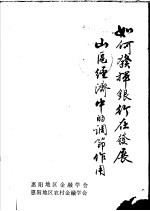 如何發揮銀行在發展
山區經濟中的調節作用
惠阳地区金融学会
惠阳地区农村金融学会